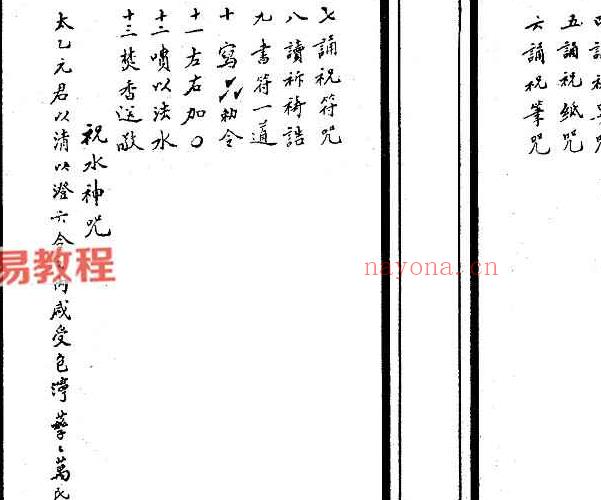 五誦祝紙咒
六誦祝筆咒
七誦祝符咒
八讀祈禱誥
九書符一道
十寫 勅令
十一左右加〇
十二噴以法水
十三焚香送敬
祝水神咒
太乙元君以清以澄六合 內咸受 萬民
易教程
nayona.cn